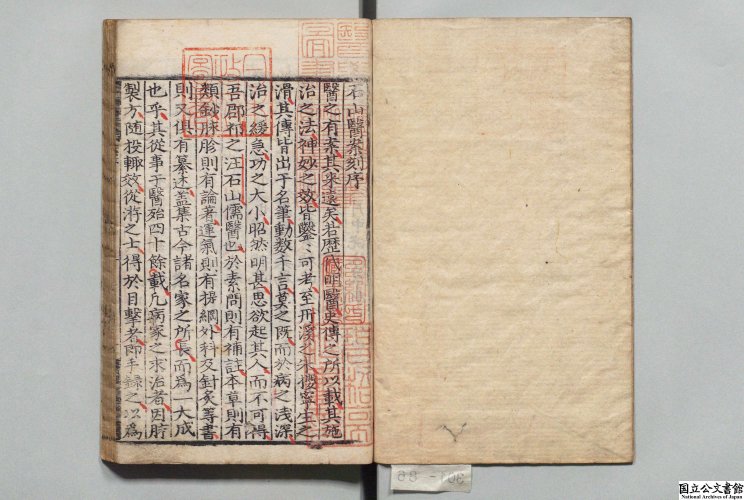 石山醫案刻序
醫之有案其來遠矣若歷代明醫史傳之所以載其施
治之法神妙之效皆鑿〻可考至丹溪之朱攖寧生之
滑其傳皆出于名筆動數千言莫之既而於病之浅深
治之緩急功之大小昭然明甚思欲起其人而不可得
吾郡祁之汪石山儒醫也於素問則有補註本草則有
類鈔脉胗則有論著運氣則有摘綱外科及針灸等書
則又俱有纂述盖集古今諸名家之所長而為一大成
也乎其從事于醫殆四十餘載凡病家之求治者因時
製方随投輒效從游之士得於目擊者即手録之以為
301-88
国立公文書館
National Archives of Japan